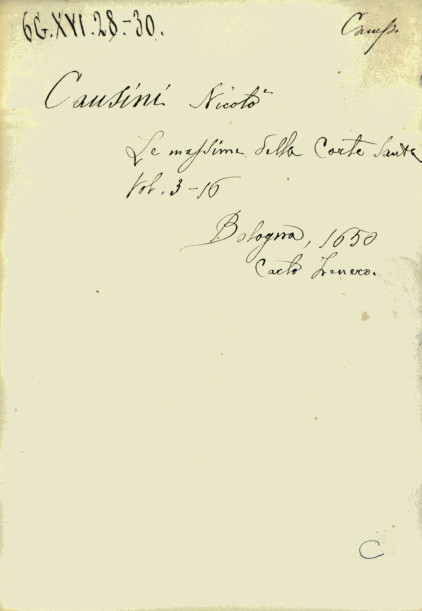 6G.XVI.28.-30.
Causini Nicolò
Le massime della Corte Santa
Vol. 3-16
Bologna, 1650
Carlo Zenero.
C